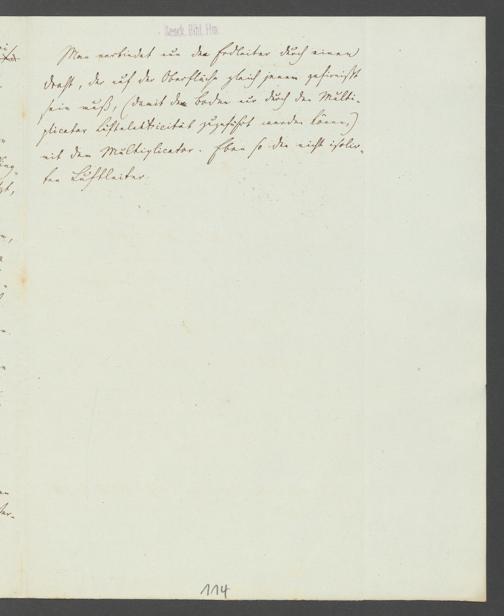 Man verbindet nur den Erdleiter durch einen
Draht, der auf der Oberfläche gleich jenem gefirnißt
sein muß, (damit dem Boden nur durch den Multi-
plicator Luftelektricität zugeführt werden könne,)
mit dem Multiplicator. Eben so den nicht isolir-
ten Luftleiter.
114